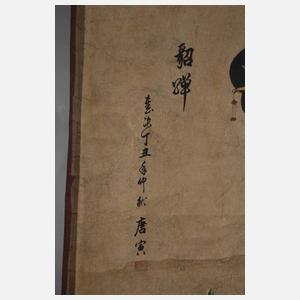 貂蟬
歲次丁丑年仲秋 唐寅